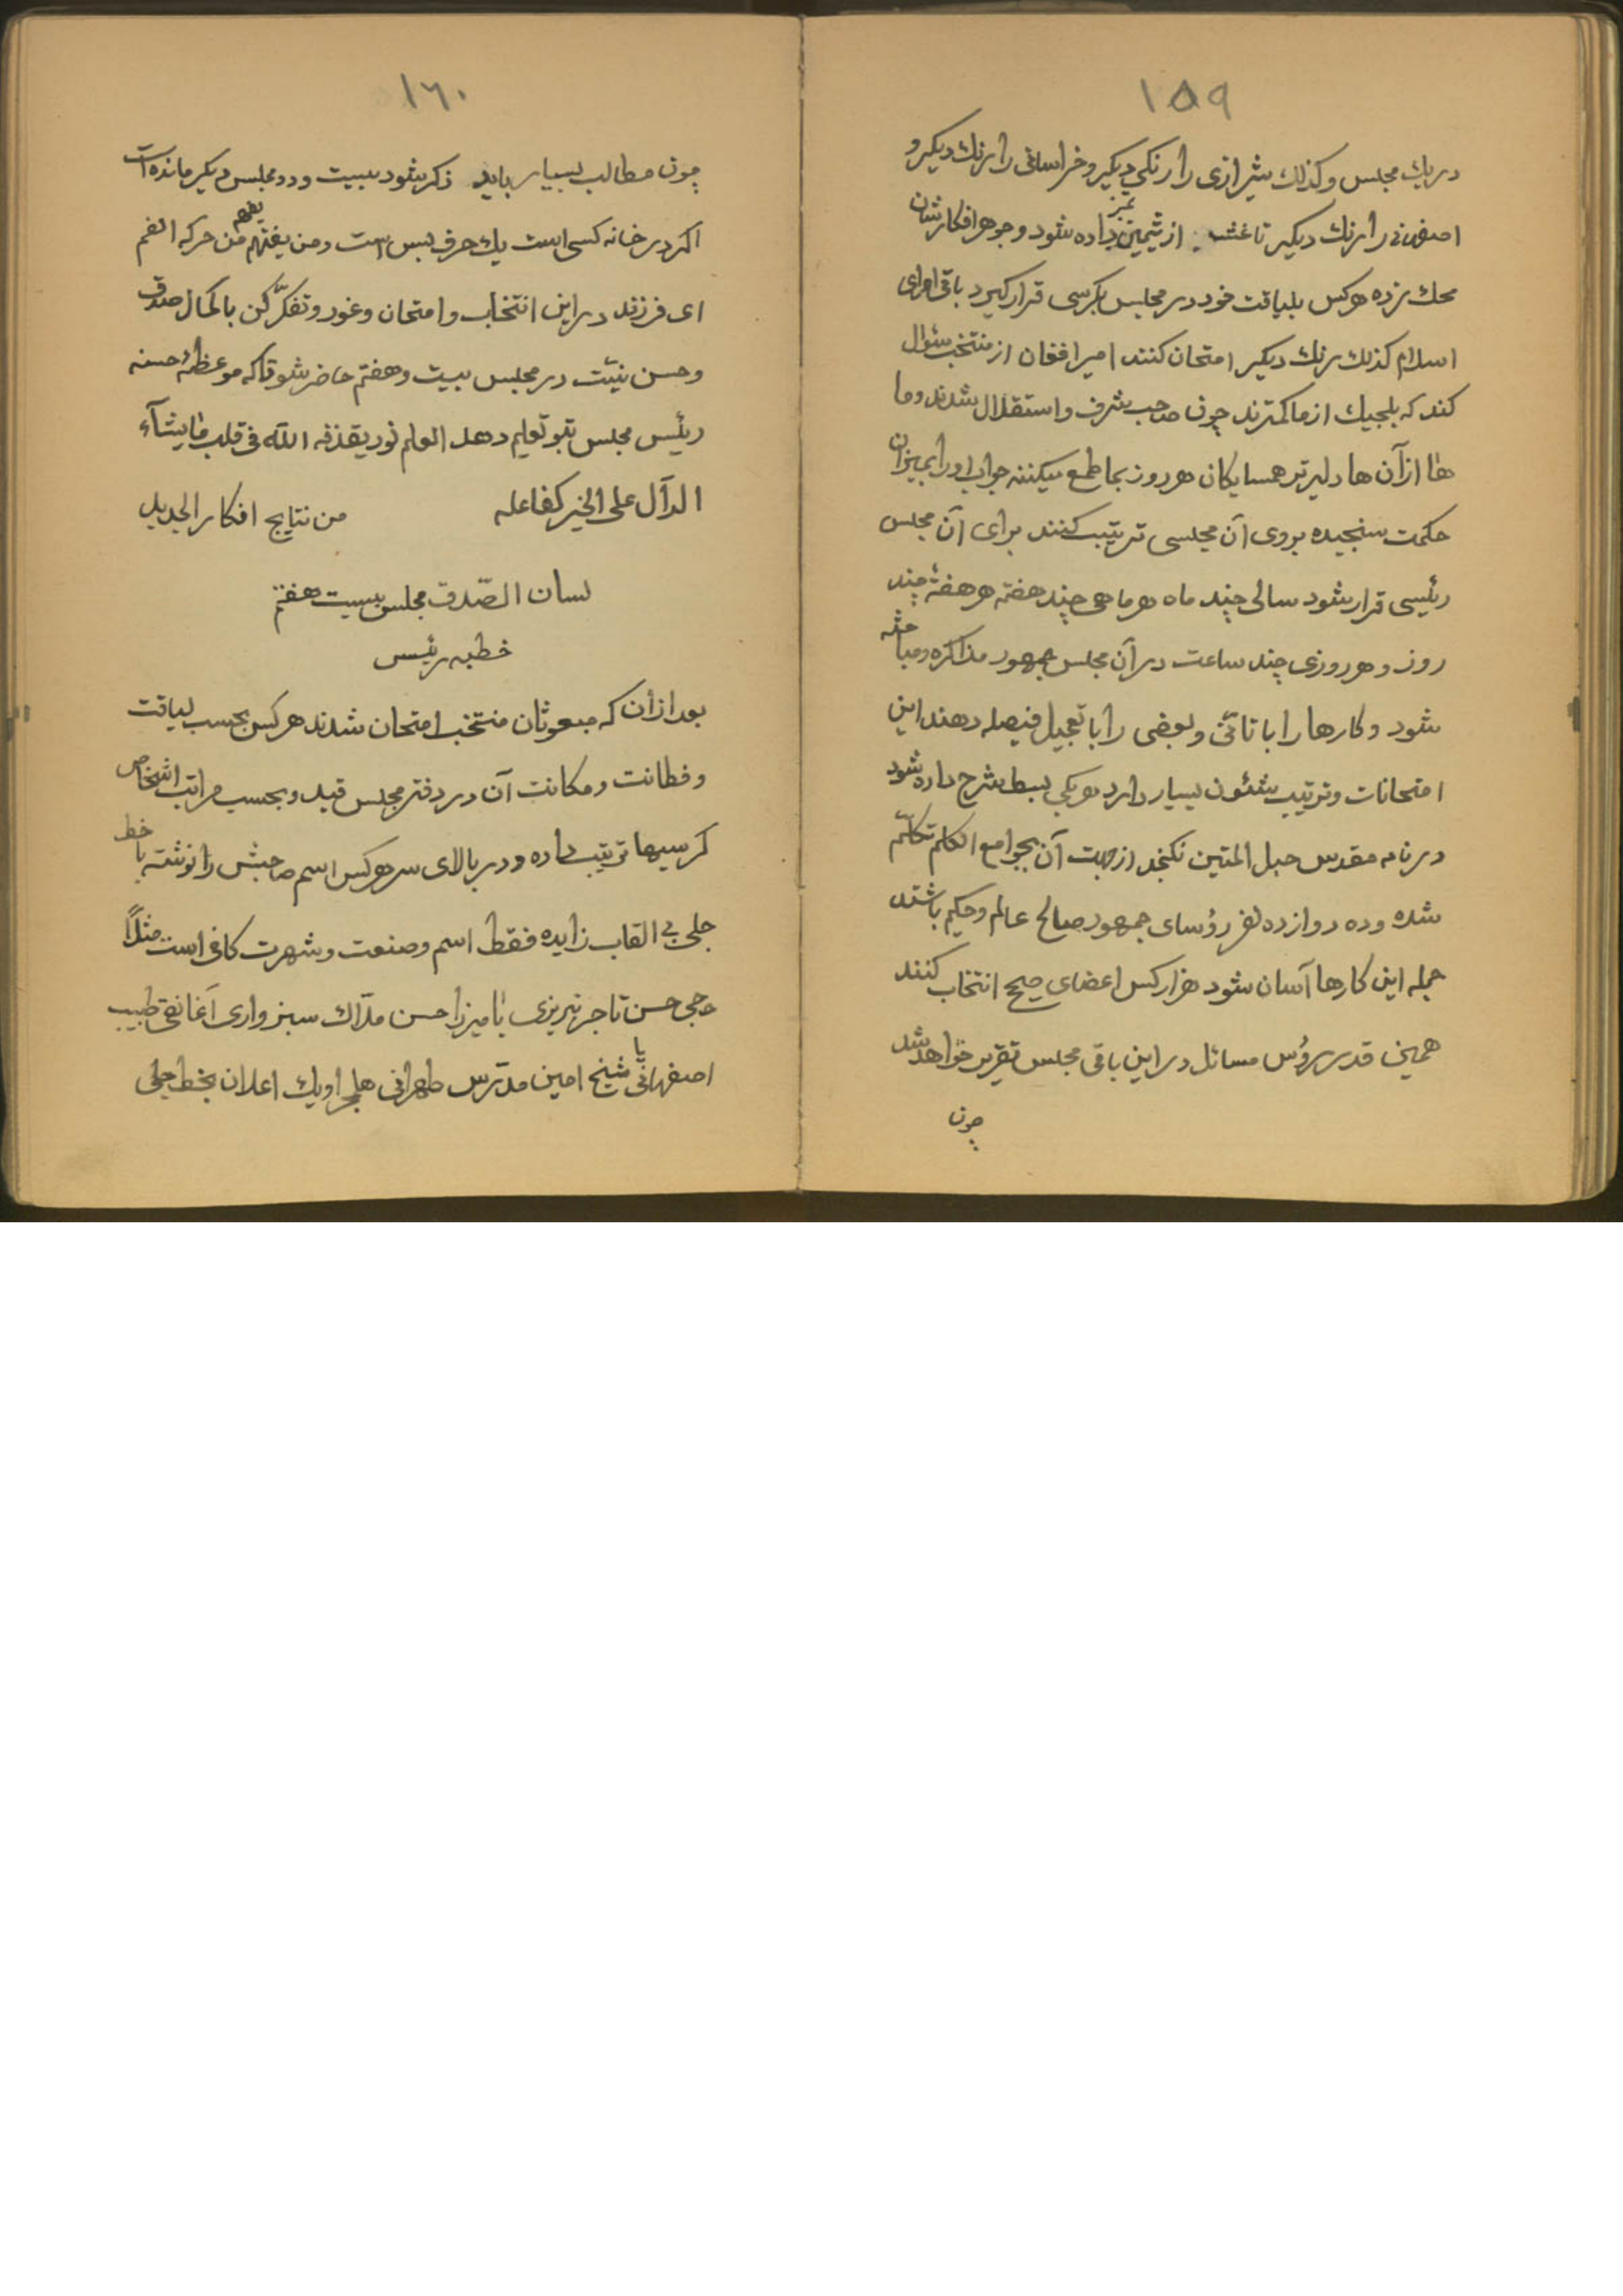 ١٥٩
در یك مجلس و كذلك شیرازی را رنكی دیكر و خراسانی را برنك دیكر و
اصفهانی را برنك دیكر تا غث از ثمین تمیز داده شود و جوهر افكارشان
محك زده هر كس بلیاقت خود در مجلس بكرسی قرار كیرد باقی امرای
اسلام كذلك برنك دیكر امتحان كنند امیر افغان از منتخب سئوال
كند كه بلجیك از ما كمترند چون صاحب شرف و استقلال شدند و ما
ها از آن ها دلیرتر همسایكان هر روز بما طمع میكنند جواب او را بمیزان
حكمت سنجیده بروی آن مجلسی ترتیب كنند برای آن مجلس
رئیسی قرار شود سالی چند ماه هر ماهی چند هفته هر هفتهٔ چند
روز و هر روزی چند ساعت در آن مجلس جمهور مذاكره و مباحثه
شود و كارها را با تأنّی و بعضی را با تعجیل فیصله دهند این
امتحانات و ترتیب شئون بسیار دارد هر یكی بسط شرح داده شود
در نامه مقدس حبل المتین نكنجد از جهت آن بجوامع الكلم تكلّم
شده و ده دوازده نفر رؤسای جمهور صالح عالم و حكیم باشند
جمله این كارها آسان شود هزار كس اعضای صحیح انتخاب كنند
همین قدر رؤس مسائل در این باقی مجلس تقریر خواهد شد
چون
١٦٠
چون مطالب بسیار باید ذكر شود بیست و دو مجلس دیكر مانده است
اكر در خانه كسی است یك حرف بس است و من یفهم من حركه الفم
ای فرزند در این انتخاب و امتحان و غور و تفكّر كن با كمال صدق
و حسن نیّت در مجلس بیست و هفتم حاضر شو تا كه موعظهٔ حسنه
رئیس مجلس بتو تعلیم دهد العلم نور یقذفه الله فی قلب من یشآء
الدآل علی الخیر كفاعله من نتایج افكار الجدید
لسان الصّدق مجلس بیست هفتم
خطبه رئیس
بعد از آن كه مبعوثان منتخب امتحان شدند هر كس بحسب لیاقت
و فطانت و مكانت آن در دفتر مجلس قید و بحسب مراتب اشخاص
كرسیها ترتیب داده و در بالای سر هر كس اسم صاحبش را نوشته با خط
جلی بی القاب زایده فقط اسم و صنعت و شهرت كافی است مثلاً
حجی حسن تاجر تبریزی یا میرزا حسن ملاّك سبزواری آغا نقی طبیب
اصفهانی یا شیخ امین مدّرس طهرانی هلم جراً و یك اعلان بخط جلی